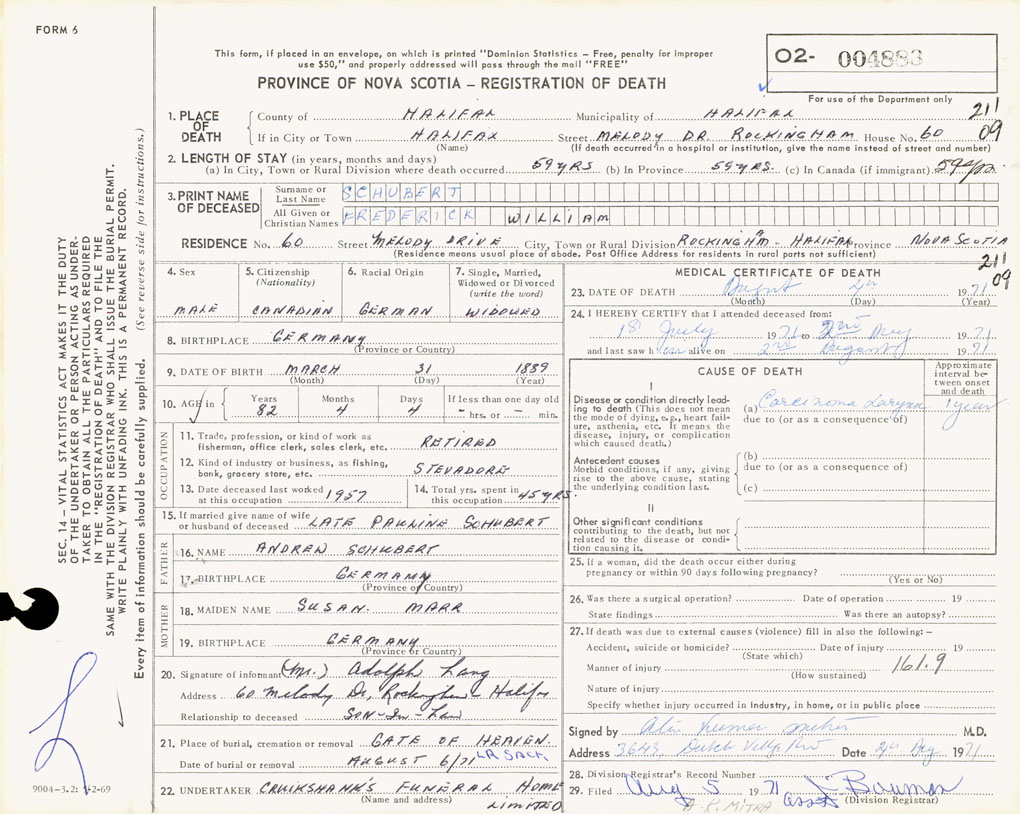 FORM 6
This form, if placed in an envelope, on which is printed "Dominion Statistics – Free, penalty for improper
use $50," and properly addressed will pass through the mail "FREE"
PROVINCE OF NOVA SCOTIA – REGISTRATION OF DEATH
O2- 004883
For use of the Department only
211
09
1. PLACE OF DEATH
County of HALIFAX Municipality of HALIFAX
If in City or Town HALIFAX Street MELODY DR. ROCKINGHAM House No. 60
(Name) (If death occurred in a hospital or institution, give the name instead of street and number)
2. LENGTH OF STAY (in years, months and days)
(a) In City, Town or Rural Division where death occurred 59 YRS (b) In Province 59 YRS. (c) In Canada (if immigrant) 59 yrs
3. PRINT NAME OF DECEASED
Surname or Last Name SCHUBERT
All Given or Christian Names FREDERICK WILLIAM
RESIDENCE No. 60 Street MELODY DRIVE City, Town or Rural Division ROCKINGHAM - HALIFAX Province NOVA SCOTIA
(Residence means usual place of abode. Post Office Address for residents in rural parts not sufficient)
211
09
4. Sex MALE
5. Citizenship (Nationality) CANADIAN
6. Racial Origin GERMAN
7. Single, Married, Widowed or Divorced (write the word) WIDOWED
8. BIRTHPLACE GERMANY
(Province or Country)
9. DATE OF BIRTH MARCH 31 1889
(Month) (Day) (Year)
10. AGE in Years 82 Months 4 Days 4 If less than one day old - hrs. or - min.
OCCUPATION
11. Trade, profession, or kind of work as fisherman, office clerk, sales clerk, etc. RETIRED
12. Kind of industry or business, as fishing, bank, grocery store, etc. STEVADORE
13. Date deceased last worked at this occupation 1957
14. Total yrs. spent in this occupation 45 YRS.
15. If married give name of wife or husband of deceased LATE PAULINE SCHUBERT
FATHER
16. NAME ANDREW SCHUBERT
17. BIRTHPLACE GERMANY
(Province or Country)
MOTHER
18. MAIDEN NAME SUSAN. MARR
19. BIRTHPLACE GERMANY
(Province or Country)
20. Signature of informant (Mr.) Adolph Lang
Address 60 Melody Dr, Rockingham - Halifx
Relationship to deceased SON-In-Law
21. Place of burial, cremation or removal GATE OF HEAVEN.
LR SACK
Date of burial or removal AUGUST 6/71
22. UNDERTAKER CRUIKSHANK'S FUNERAL HOME
(Name and address) LIMITED
MEDICAL CERTIFICATE OF DEATH
23. DATE OF DEATH August 4th 1971
(Month) (Day) (Year)
24. I HEREBY CERTIFY that I attended deceased from:
18 July 1971 to 2nd Aug 1971
and last saw him alive on 2nd August 1971
CAUSE OF DEATH
Approximate interval between onset and death
I
Disease or condition directly leading to death (This does not mean the mode of dying, e.g., heart failure, asthenia, etc. It means the disease, injury, or complication which caused death.)
(a) Carcinoma Larynx 1 year
due to (or as a consequence of)
Antecedent causes
Morbid conditions, if any, giving rise to the above cause, stating the underlying condition last.
(b)
due to (or as a consequence of)
(c)
II
Other significant conditions
contributing to the death, but not related to the disease or condition causing it.
25. If a woman, did the death occur either during
pregnancy or within 90 days following pregnancy?
(Yes or No)
26. Was there a surgical operation? Date of operation 19
State findings Was there an autopsy?
27. If death was due to external causes (violence) fill in also the following: –
Accident, suicide or homicide? Date of injury 19
(State which)
161.9
Manner of injury
(How sustained)
Nature of injury
Specify whether injury occurred in industry, in home, or in public place
Signed by M.D.
Address 3643 Dutch Village Date Aug 1971
28. Division Registrar's Record Number
29. Filed Aug 5 1971 Asst J. Bauman
(Division Registrar)
A. K. MITRA
SEC. 14 – VITAL STATISTICS ACT MAKES IT THE DUTY
OF THE UNDERTAKER OR PERSON ACTING AS UNDER-
TAKER TO OBTAIN ALL THE PARTICULARS REQUIRED
IN THE "REGISTRATION OF DEATH" AND TO FILE THE
SAME WITH THE DIVISION REGISTRAR WHO SHALL ISSUE THE BURIAL PERMIT.
WRITE PLAINLY WITH UNFADING INK. THIS IS A PERMANENT RECORD.
Every item of information should be carefully supplied. (See reverse side for instructions.)
9004-3.2: